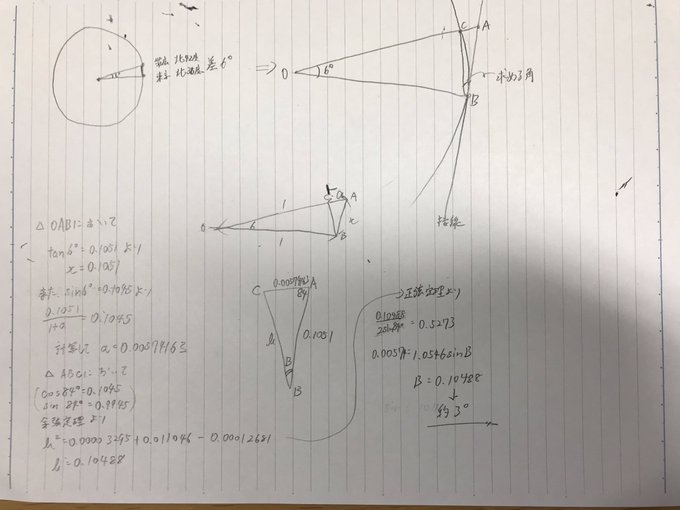 北42度
東京 北36度 差6°
⇒
O
6°
C
A
B
求める角
接線
O
1
6
1
C
a
A
x
B
△OABにおいて
tan6°=0.1051 より
x=0.1051
また、sin6°=0.1045より
0.1051/1+a=0.1045
計算して a=0.00574163
△ABCにおいて
(cos84°=0.1045
sin84°=0.9945)
余弦定理より
b²=0.00003295+0.011046-0.00012681
b=0.10488
C
A
84
b
0.1051
B
B
正弦定理より
=0.5273
0.0057=1.0546sinB
B=0.10488
↓
約3°